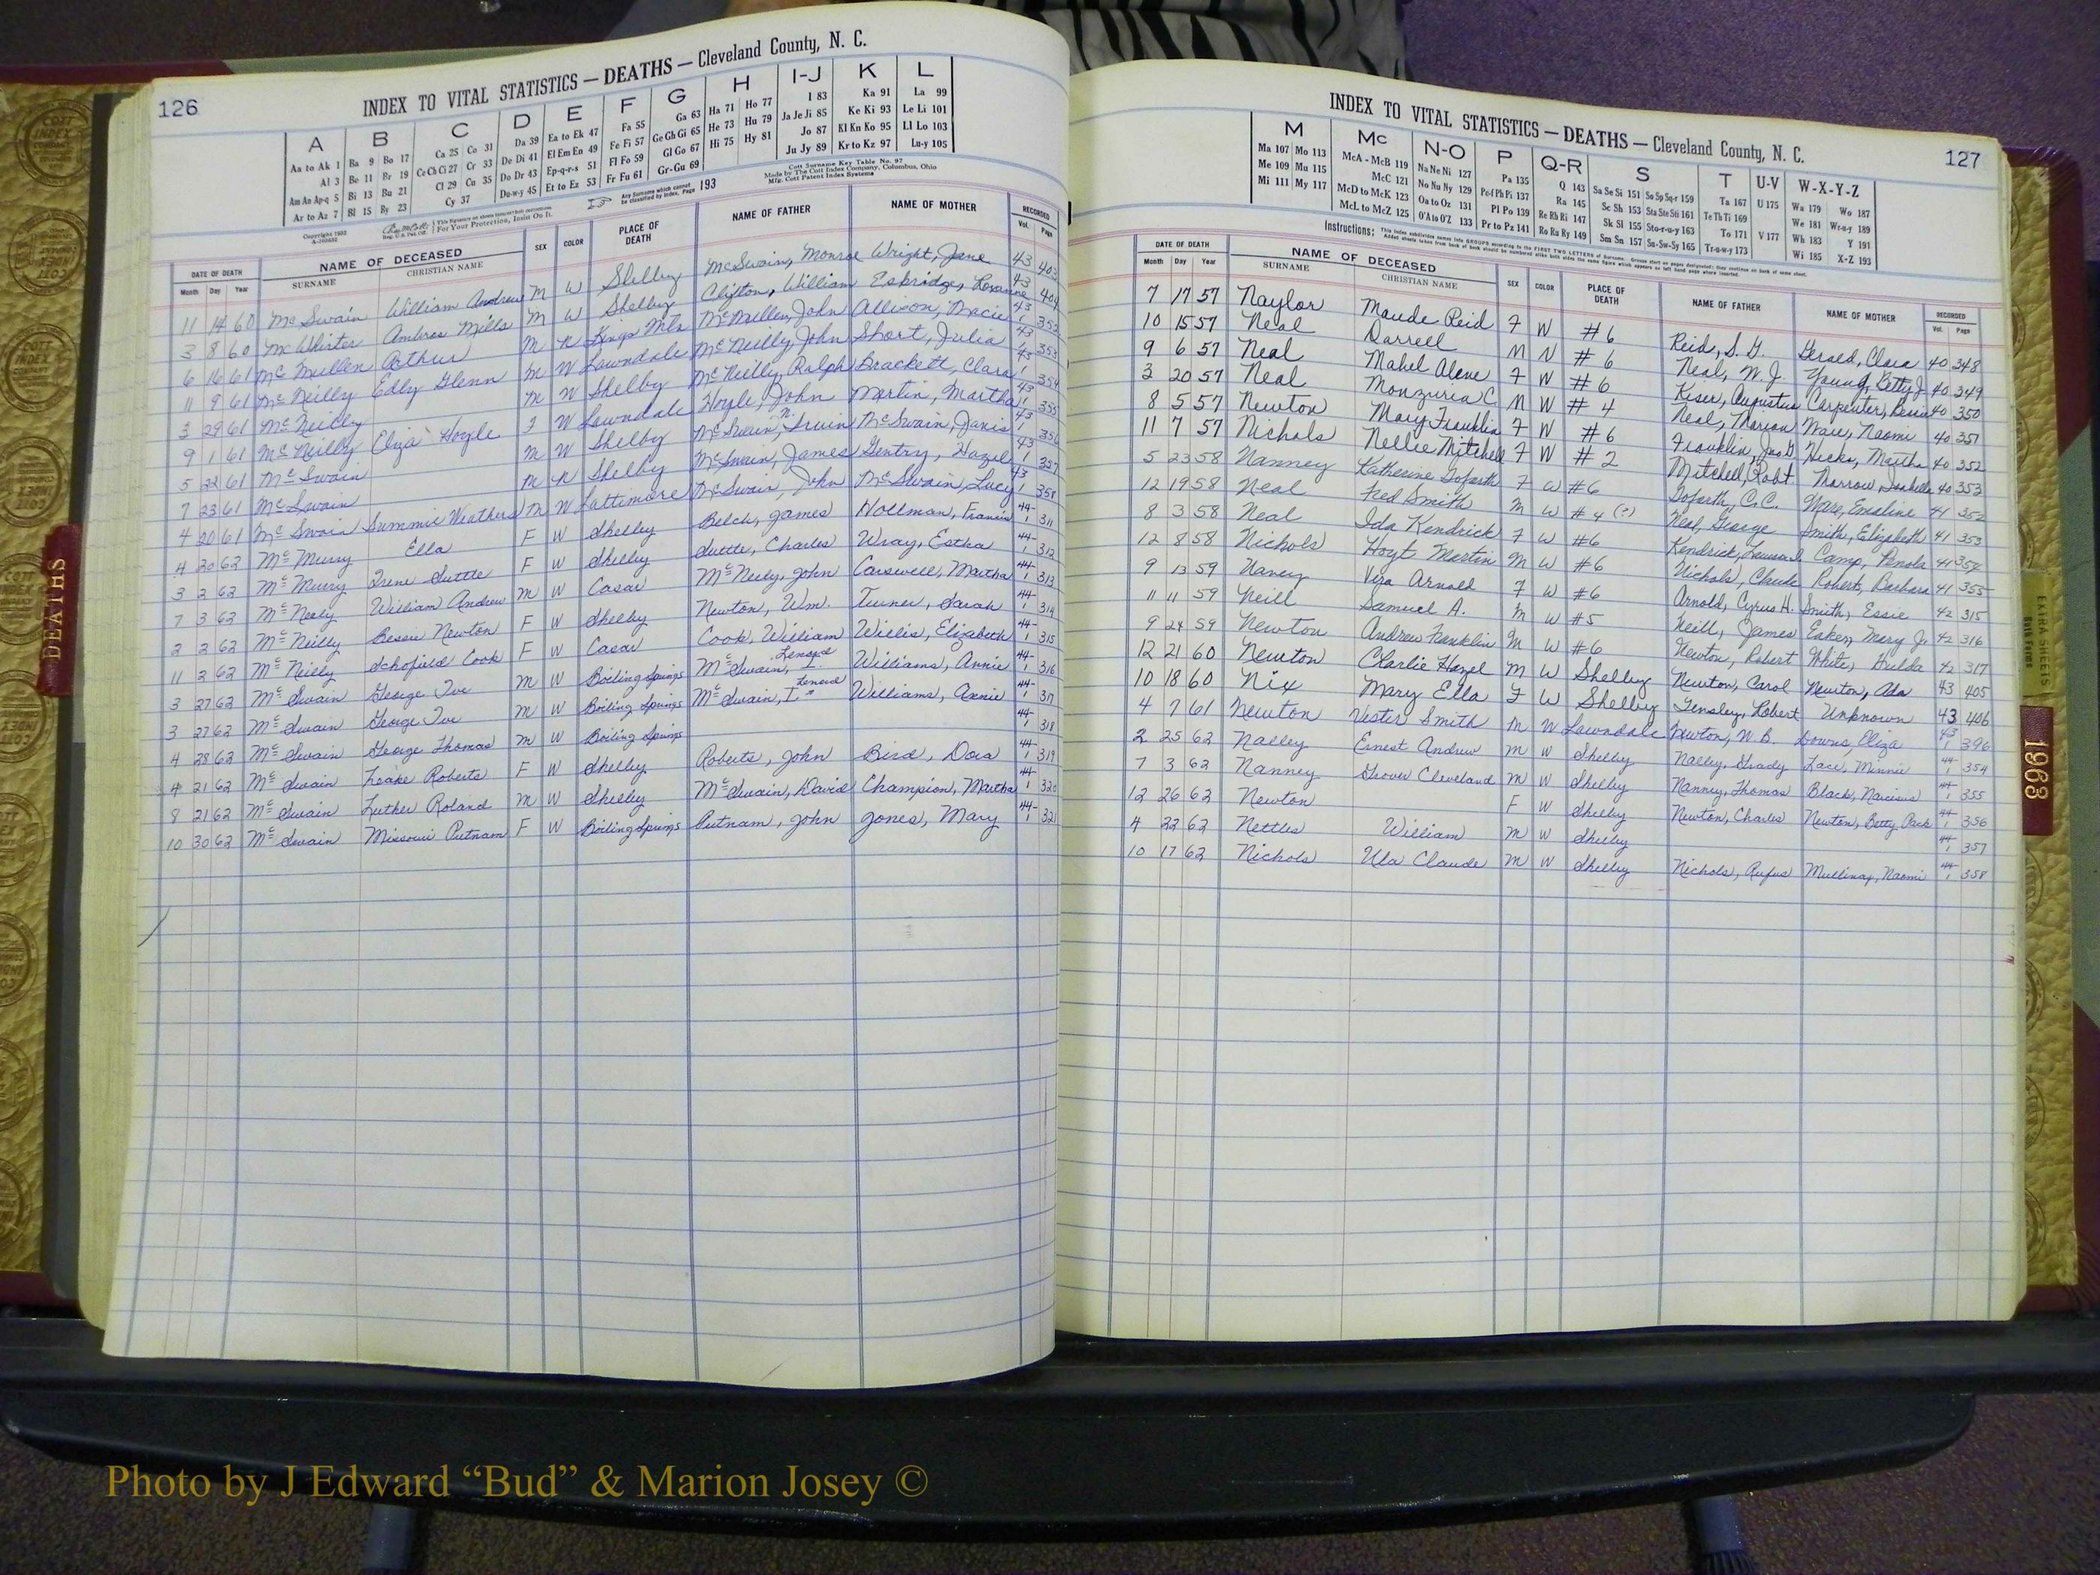 126
INDEX TO VITAL STATISTICS — DEATHS — Cleveland County, N. C.
A B C D E F G H I-J K L
Aa to Ak 1 Ba 9 Bo 17 Ca 25 Co 31 Da 39 Ea to Ek 47 Fa 55 Ga 63 Ha 71 Ho 77 I 83 Ka 91 La 99
Al 3 Be 11 Br 19 Ce Ch Ci 27 Cr 33 De Di 41 El Em En 49 Fe Fi 57 Ge Gh Gi 65 He 73 Hu 79 Ja Je Ji 85 Ke Ki 93 Le Li 101
Am An Ap-q 5 Bi 13 Bu 21 Cl 29 Cu 35 Do Dr 43 Ep-q-r-s 51 Fl Fo 59 Gl Go 67 Hi 75 Hy 81 Jo 87 Kl Kn Ko 95 Ll Lo 103
Ar to Az 7 Bl 15 By 23 Cy 37 Du-w-y 45 Et to Ez 53 Fr Fu 61 Gr-Gu 69 Ju Jy 89 Kr to Kz 97 Lu-y 105
Any Surname which cannot be classified by index, Page 193
Cott Surname Key Table No. 97
Made by The Cott Index Company, Columbus, Ohio
Mfg. Cott Patent Index Systems
DATE OF DEATH NAME OF DECEASED SEX COLOR PLACE OF DEATH NAME OF FATHER NAME OF MOTHER RECORDED
Month Day Year SURNAME CHRISTIAN NAME Vol. Page
11 14 60 McSwain William Andrew M W Shelby McSwain, Monroe Wright, Jane 43 403
3 8 60 McWhirter Ambros Mills M W Shelby Clifton, William Eskridge, 43 404
6 16 61 McMullen Arthur M N Kings Mtn McMullen, John Allison, Macie 43 1 352
11 9 61 McNeilly Edly Glenn M W Lawndale McNeilly, John Short, Julia 43 1 353
3 29 61 McNeilly M W Shelby McNeilly, Ralph Brackett, Clara 43 1 354
9 1 61 McNeilly Eliza Hoyle F W Lawndale Hoyle, John Martin, Martha 43 1 355
5 22 61 McSwain M W Shelby McSwain, Irvin McSwain, Janis 43 1 356
7 23 61 McSwain M N Shelby McSwain, James Gentry, Hazel 43 1 357
4 20 61 McSwain Summie Weathers M W Lattimore McSwain, John McSwain, Lucy 43 1 358
4 30 62 McMurry Ella F W Shelby Belch, James Hollman, Francis 44 1 311
3 2 62 McMurry Irene Suttle F W Shelby Suttle, Charles Wray, Esther 44 1 312
7 3 62 McNeely William Andrew M W Casar McNeely, John Carswell, Martha 44 1 313
2 2 62 McNeilly Bessie Newton F W Shelby Newton, Wm. Turner, Sarah 44 1 314
11 2 62 McNeilly Schofield Cook F W Casar Cook, William Willis, Elizabeth 44 1 315
3 27 62 McSwain George Ive M W Boiling Springs McSwain, I. Lenard Williams, Annie 44 1 316
3 27 62 McSwain George Ive M W Boiling Springs McSwain, I. Lenard Williams, Annie 44 1 317
4 28 62 McSwain George Thomas M W Boiling Springs 44 1 318
4 21 62 McSwain Leake Roberts F W Shelby Roberts, John Bird, Dora 44 1 319
8 21 62 McSwain Luther Roland M W Shelby McSwain, David Champion, Martha 44 1 320
10 30 62 McSwain Missouri Putnam F W Boiling Springs Putnam, John Jones, Mary 44 1 321
INDEX TO VITAL STATISTICS — DEATHS — Cleveland County, N. C.
127
M Mc N-O P Q-R S T U-V W-X-Y-Z
Ma 107 Mo 113 McA - McB 119 Na Ne Ni 127 Pa 135 Q 143 Sa Se Si 151 So Sp Sq-r 159 Ta 167 U 175 Wa 179 Wo 187
Me 109 Mu 115 McC 121 No Nu Ny 129 Pe-f Ph Pi 137 Ra 145 Sc Sh 153 Sta Ste Sti 161 Te Th Ti 169 We 181 Wr-u-y 189
Mi 111 My 117 McD to McK 123 Oa to Oz 131 Pl Po 139 Re Rh Ri 147 Sk Sl 155 Sto-r-u-y 163 To 171 V 177 Wh 183 Y 191
McL to McZ 125 O'A to O'Z 133 Pr to Pz 141 Ro Ru Ry 149 Sm Sn 157 Su-Sw-Sy 165 Tr-u-w-y 173 Wi 185 X-Z 193
Instructions:
DATE OF DEATH NAME OF DECEASED SEX COLOR PLACE OF DEATH NAME OF FATHER NAME OF MOTHER RECORDED
Month Day Year SURNAME CHRISTIAN NAME Vol. Page
7 17 57 Naylor Maude Reid F W #6 Reid, S. G. Gerald, Clara 40 348
10 15 57 Neal Darrell M N #6 Neal, W. J. Young, Betty J. 40 349
9 6 57 Neal Mabel Alene F W #6 Kiser, Augustus Carpenter, Bessie 40 350
3 20 57 Neal Monzuria C M W #4 Neal, Marion Ware, Naomi 40 351
8 5 57 Newton Mary Franklin F W #6 Franklin, Jas G Hicks, Martha 40 352
11 7 57 Nichols Nellie Mitchell F W #2 Mitchell, Robt Morrow, Isabella 40 353
5 23 58 Nanney Katherine Goforth F W #6 Goforth, C.C. Ware, Emaline 41 352
12 19 58 Neal Fred Smith M W #4 (?) Neal, George Smith, Elizabeth 41 353
8 3 58 Neal Ida Kendrick F W #6 Kendrick, Camp, 41 354
12 8 58 Nichols Hoyt Martin M W #6 Nichols, Claude Roberts, Barbara 41 355
9 13 59 Naney Vera Arnold F W #6 Arnold, Cyrus H. Smith, Essie 42 315
11 11 59 Neill Samuel A. M W #5 Neill, James Esker, Mary J. 42 316
9 24 59 Newton Andrew Franklin M W #6 Newton, Robert White, Hulda 42 317
12 21 60 Newton Charlie Hazel M W Shelby Newton, Carol Newton, Ada 43 405
10 18 60 Nix Mary Ella F W Shelby Tensley, Robert Unknown 43 406
4 7 61 Newton Vester Smith M W Lawndale Newton, W. B. Downs, Eliza 43 1 396
2 25 62 Nalley Ernest Andrew M W Shelby Nalley, Grady Lace, Minnie 44 1 354
7 3 62 Nanney Grover Cleveland M W Shelby Nanney, Thomas Black, Narcissus 44 1 355
12 26 62 Newton F W Shelby Newton, Charles Newton, Betty Pack 44 1 356
4 22 62 Nettles William M W Shelby 44 1 357
10 17 62 Nichols Ula Claude M W Shelby Nichols, Rufus Mullinax, Naomi 44 1 358
DEATHS
EXTRA SHEETS
Both Forms
1968
Photo by J Edward “Bud” & Marion Josey ©